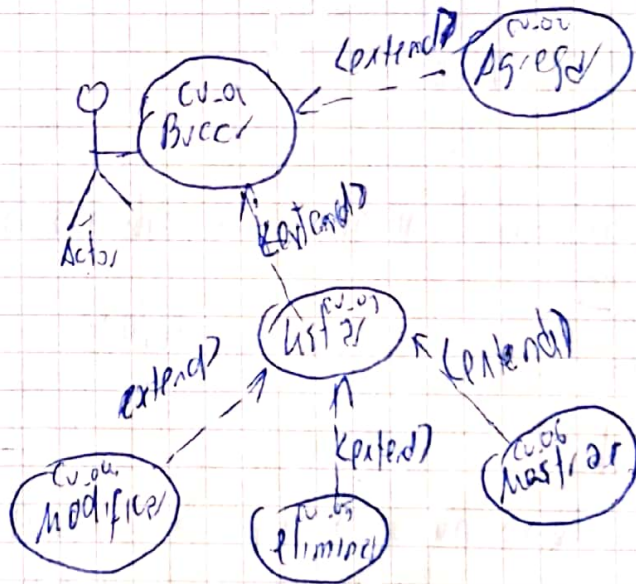 <extend>
CU_02
Agregar
CU_01
Buscar
Actor
<extend>
CU_03
Listar
extend>
<extend>
<extend>
CU_04
Modificar
CU_05
eliminar
CU_06
Mostrar